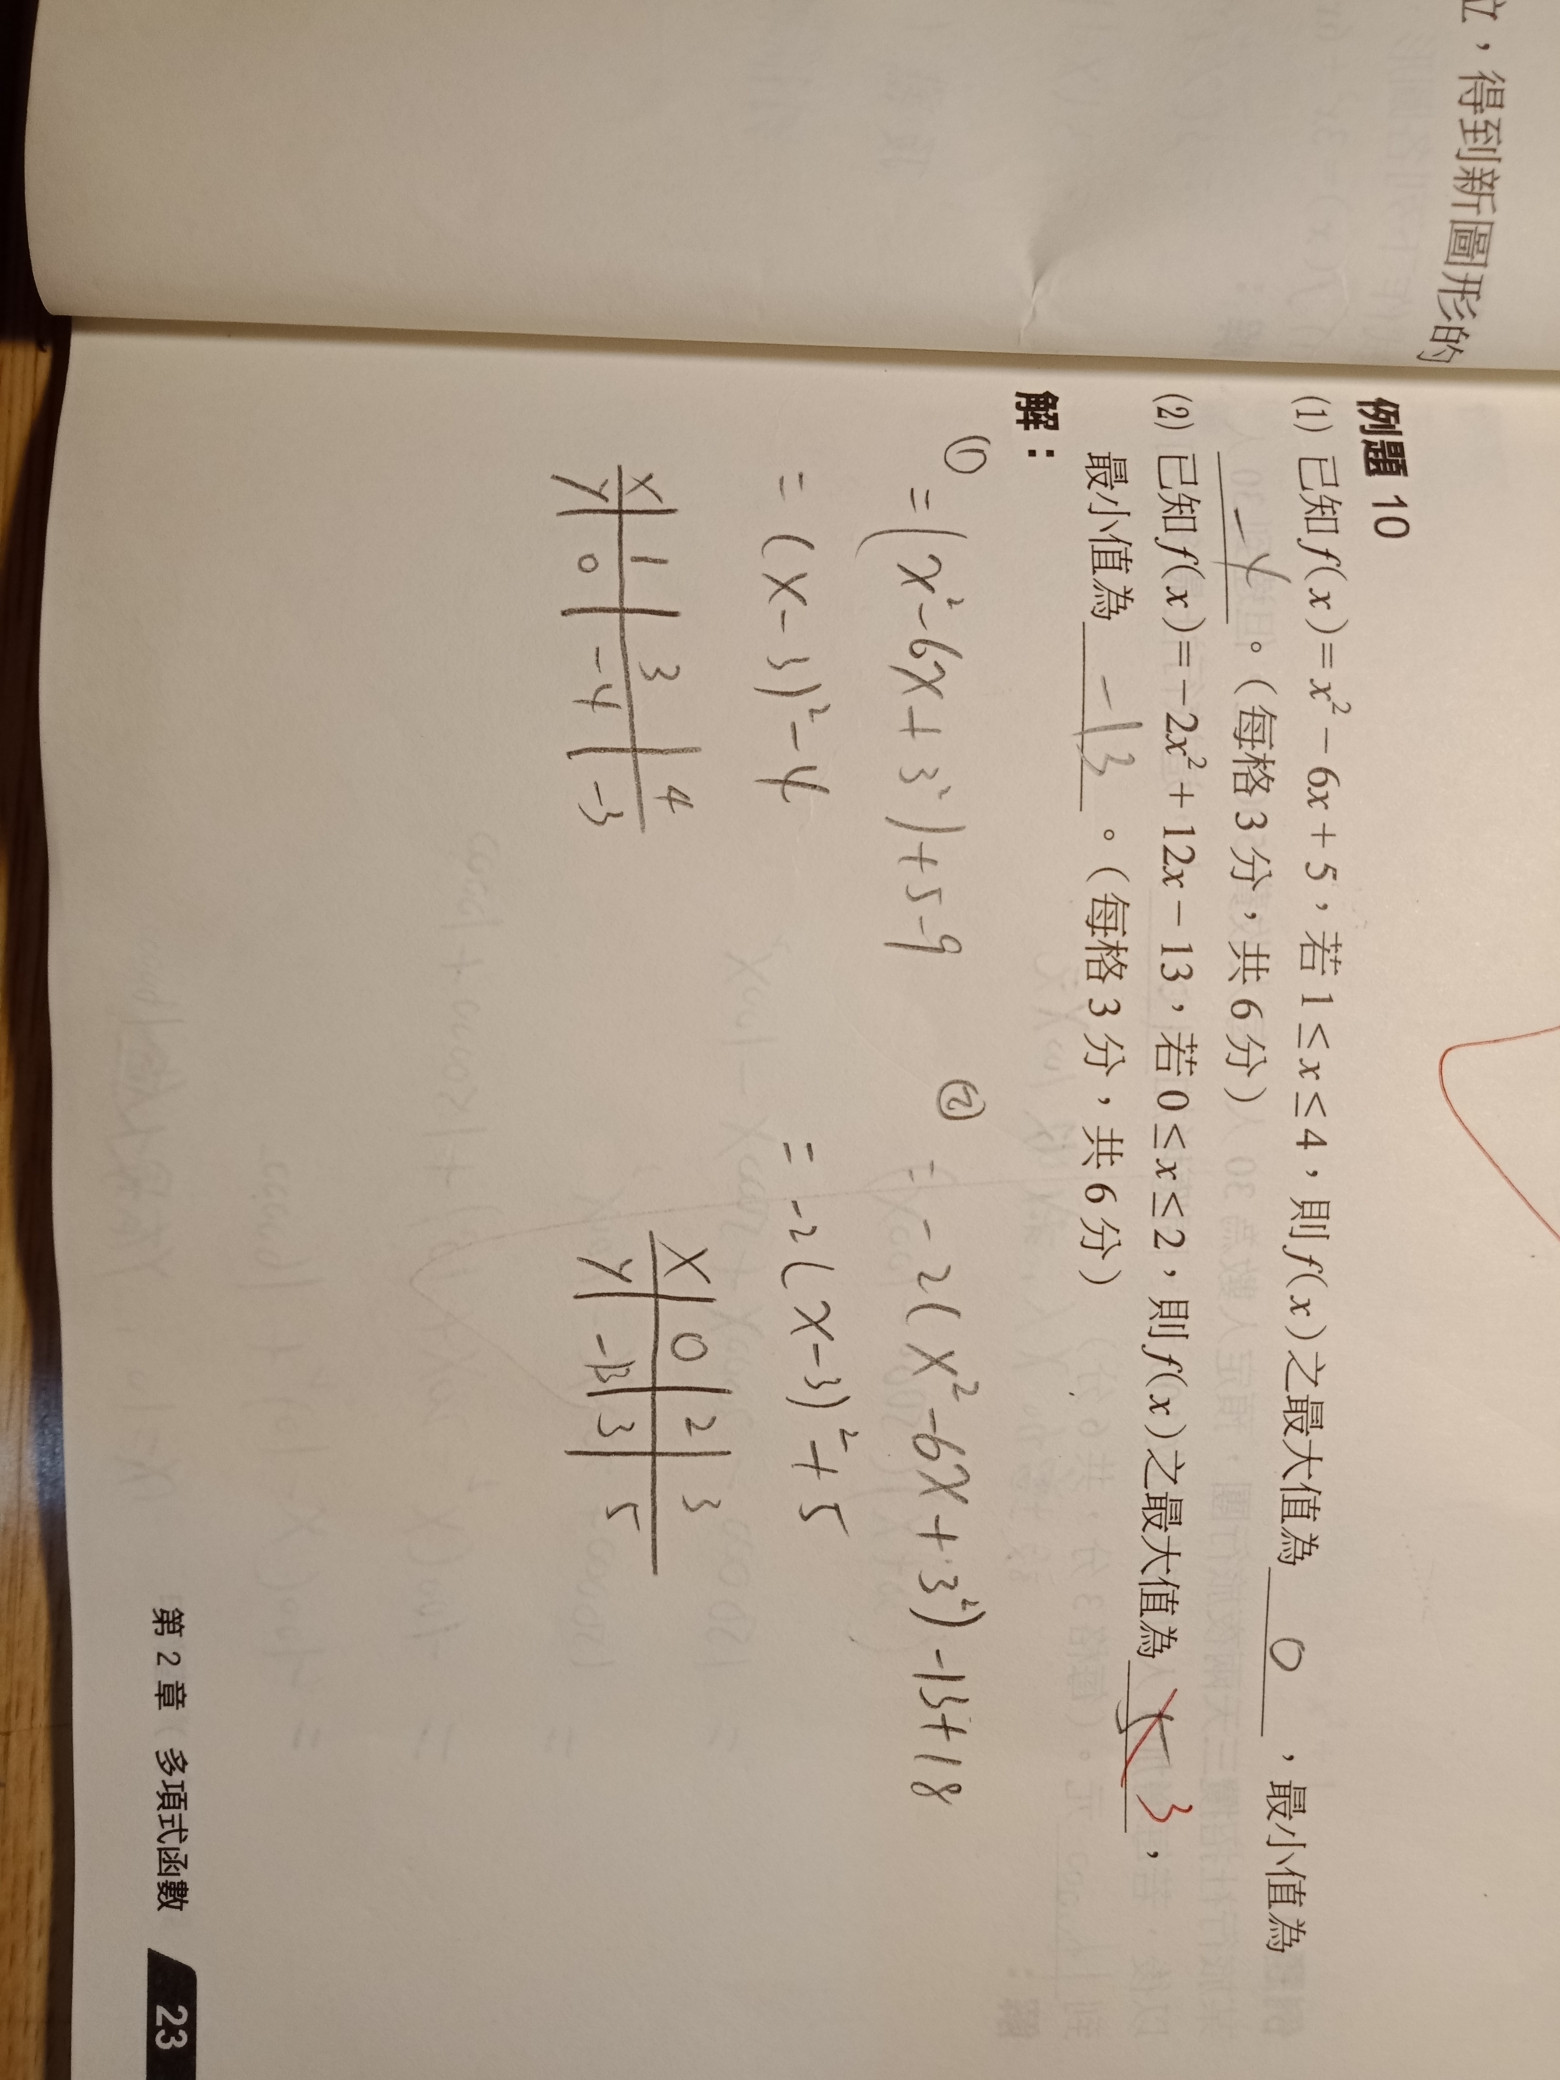 立，得到新圖形的
例題 10
(1) 已知 f(x)=x²－6x＋5，若 1≤x≤4，則 f(x) 之最大值為 0 ，最小值為
-4 。(每格 3 分，共 6 分)
(2) 已知 f(x)=－2x²＋12x－13，若 0≤x≤2，則 f(x) 之最大值為 5 3 ，
最小值為 -13 。(每格 3 分，共 6 分)
解：
(1)
=(x²-6x+3²)+5-9
=(x-3)²-4
x 1 3 4
y 0 -4 -3
②
=-2(x²-6x+3²)-13+18
=-2(x-3)²+5
x 0 2 3
y -13 3 5
第 2 章 多項式函數 23